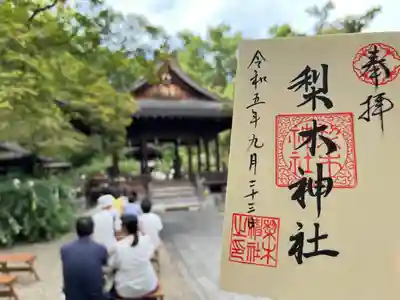 奉拝
梨木神社
令和五年九月二十三日